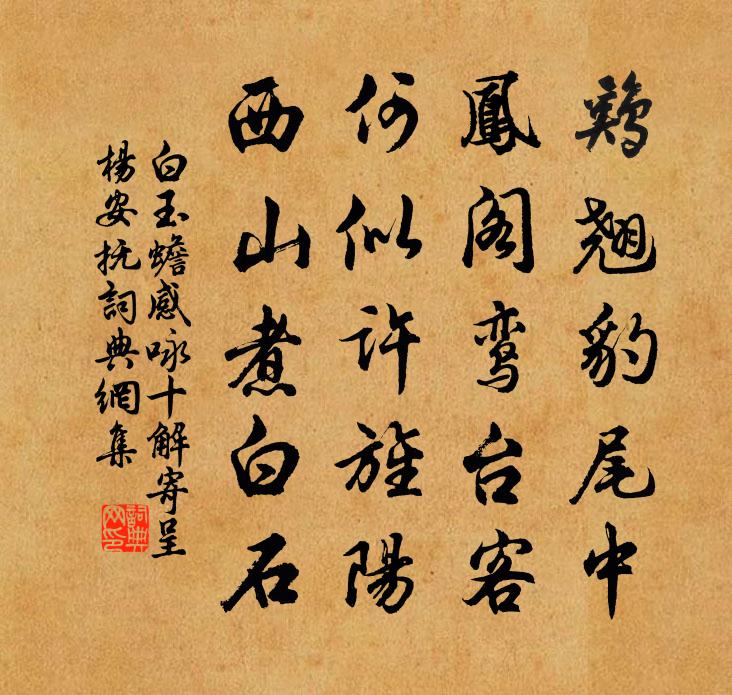 鷄翹豹尾中
鳳阁鸾台客
何似許旌陽
西山煮白石
白玉蟾感咏十解寄呈
楊安抚詞典網集
詞典网印